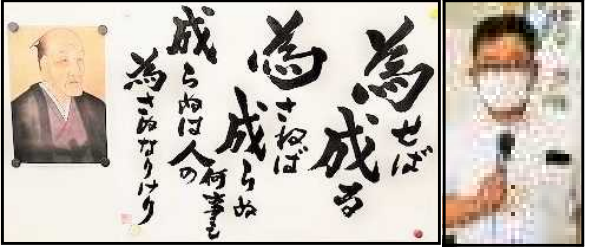 為せば
成る
為さねば
成らぬ
何事も
成らぬは人の
為さぬなりけり